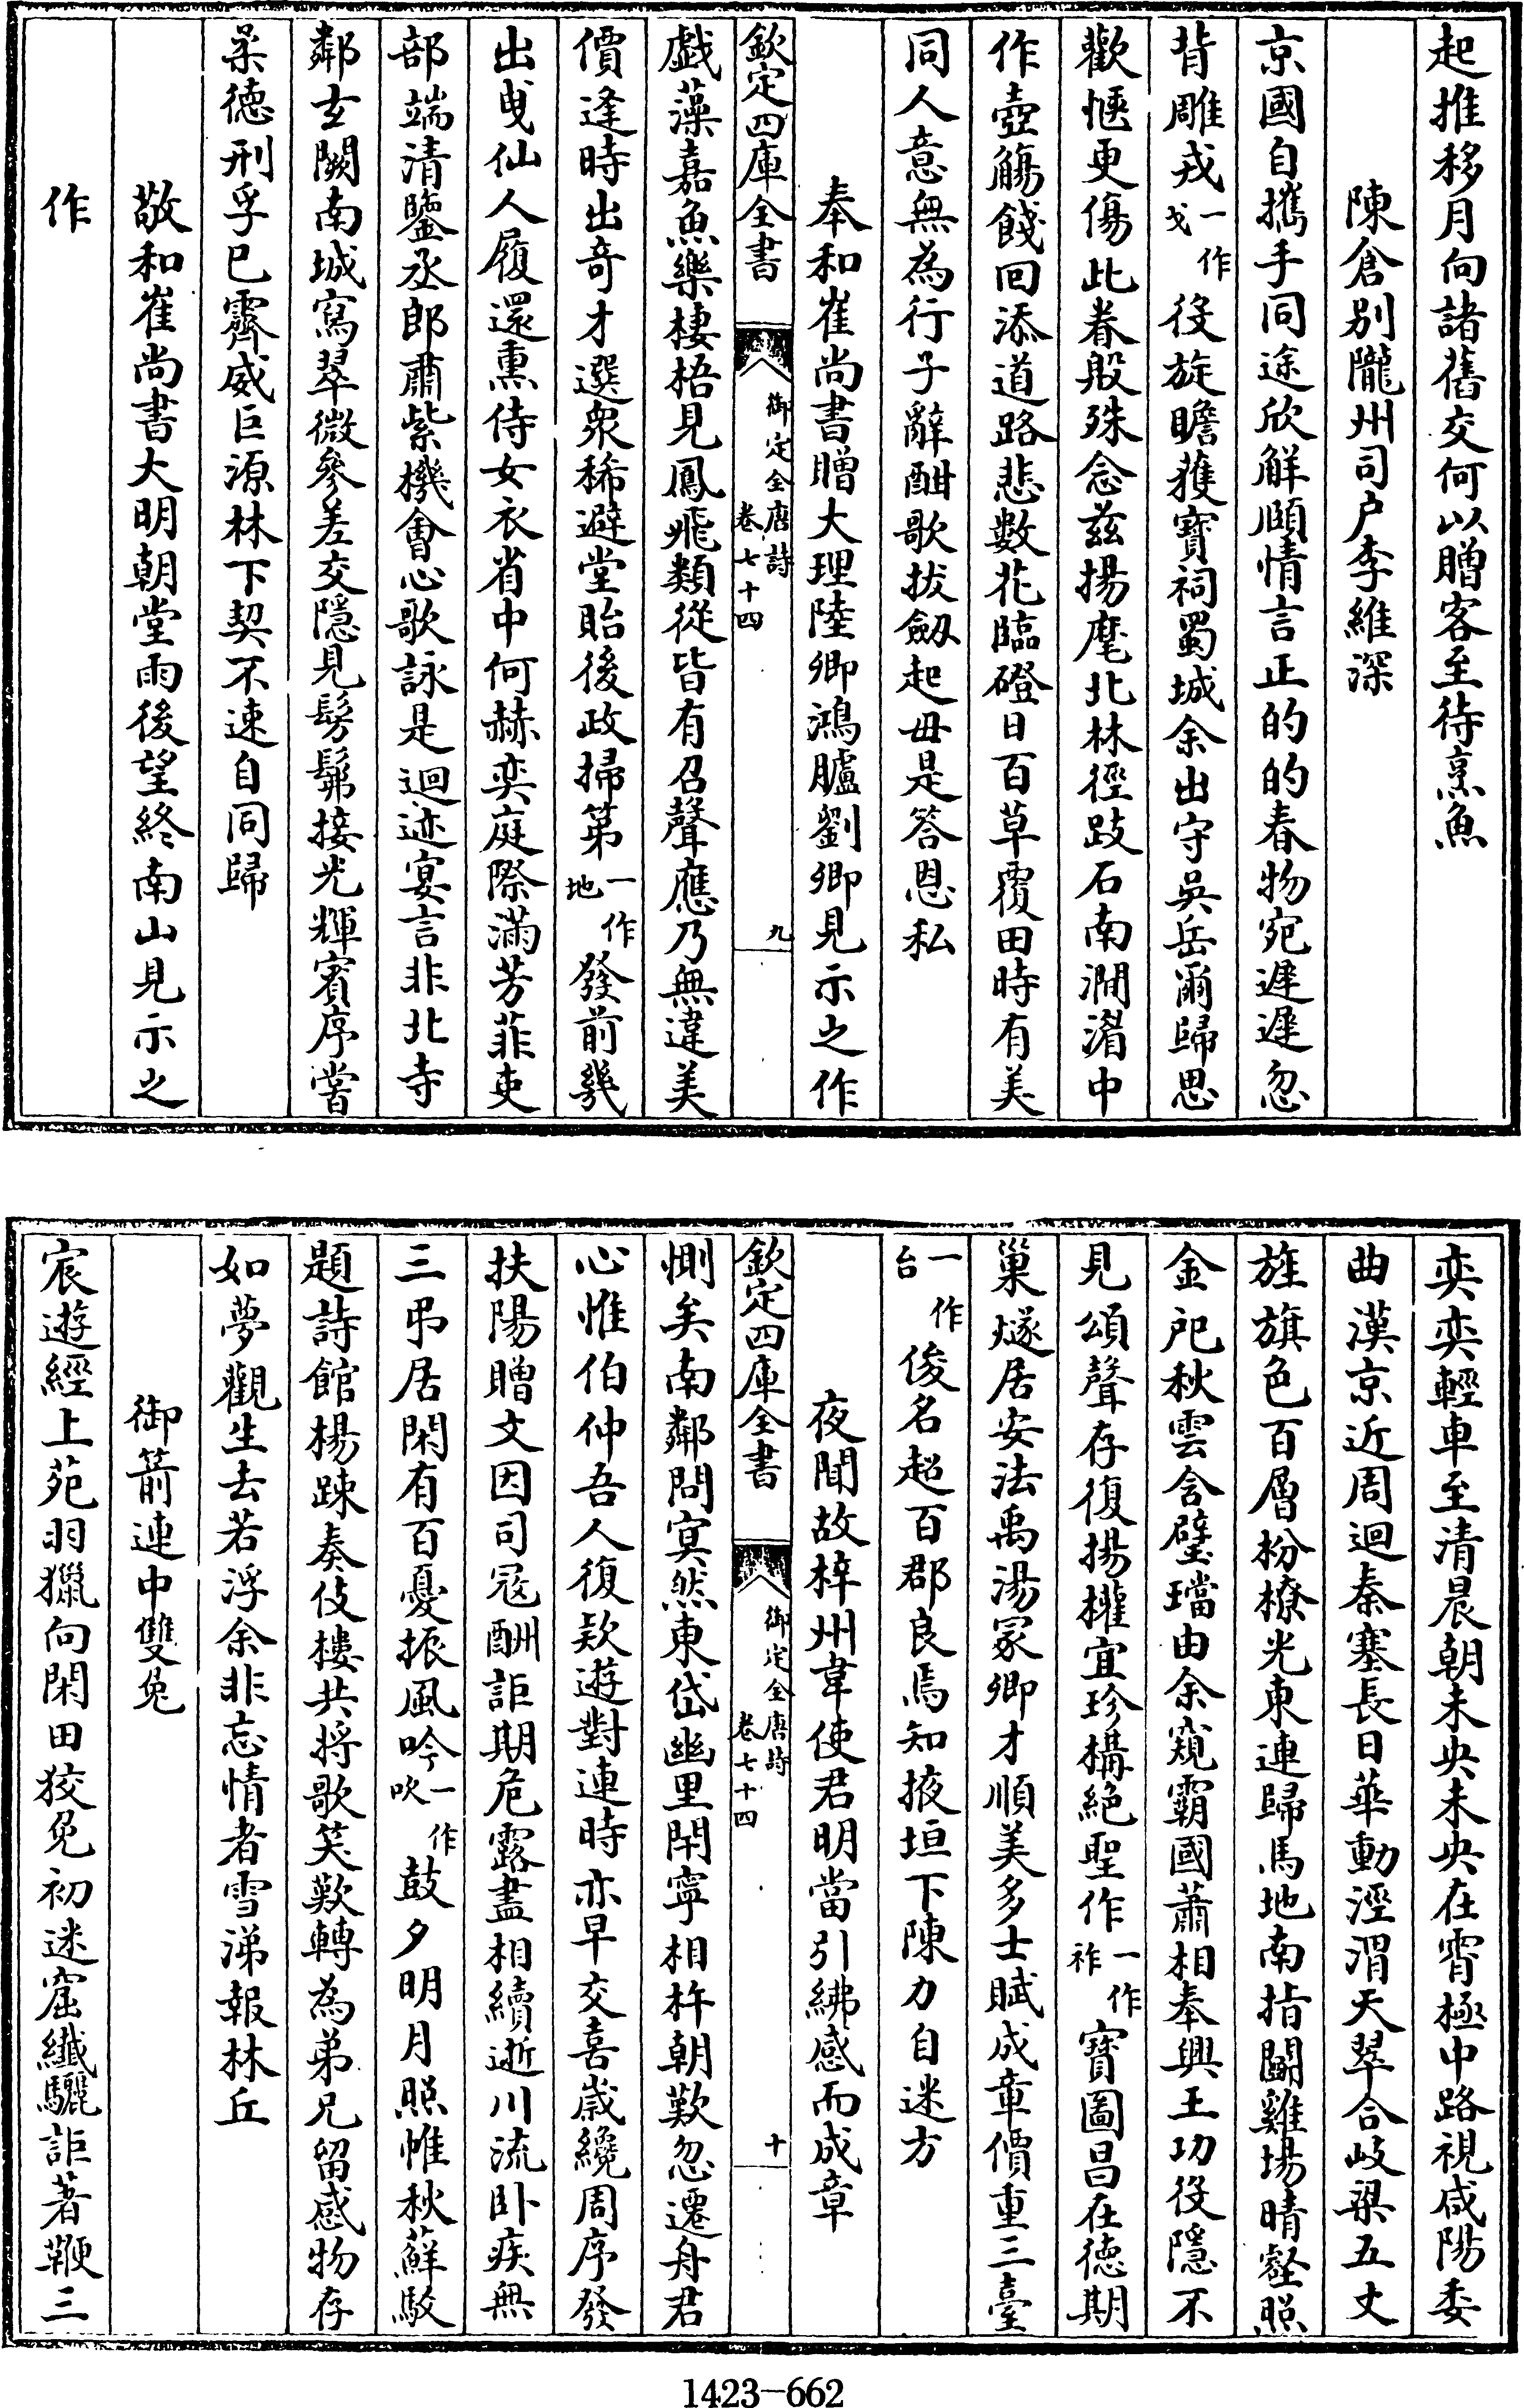 起推移月向諸舊交何以贈客至待烹魚
陳倉別隴州司户李維深
京國自攜手同途欣解頤情言正的的春物宛遲遲忽
背雕戎一作戈役旋瞻獲寶祠蜀城余出守吳岳爾歸思
歡愜更傷此眷殷殊念兹揚麾北林徑跂石南澗湄中
作壺觴餞回添道路悲數花臨磴日百草覆田時有美
同人意無為行子辭酣歌拔劒起毋是答恩私
奉和崔尚書贈大理陸卿鴻臚劉卿見示之作
欽定四庫全書
御定全唐詩
卷七十四
九
戲藻嘉魚樂棲梧見鳳飛類從皆有召聲應乃無違美
價逢時出奇才選衆稀避堂貽後政掃第一作地發前幾
出曵仙人履還熏侍女衣省中何赫奕庭際滿芳菲吏
部端清鑒丞郎肅紫機會心歌詠是迴迹宴言非北寺
鄰玄闕南城寫翠微參差交隱見髣髴接光輝賓序嘗
柔德刑孚已霽威巨源林下契不速自同歸
敬和崔尚書大明朝堂雨後望終南山見示之
作
奕奕輕車至清晨朝未央未央在霄極中路視咸陽委
曲漢京近周迴秦塞長日華動涇渭天翠合岐梁五丈
旌旗色百層枌橑光東連歸馬地南指鬭雞場晴壑照
金戺秋雲含璧璫由余窺霸國蕭相奉興王功役隱不
見頌聲存復揚權宜珍構絕聖作一作祚寶圖昌在德期
巢燧居安法禹湯冢卿才順美多士賦成章價重三臺
一作台俊名超百郡良焉知掖垣下陳力自迷方
夜聞故梓州韋使君明當引紼感而成章
欽定四庫全書
御定全唐詩
卷七十四
十
惻矣南鄰問冥然東岱幽里閈寧相杵朝歎忽遷舟君
心惟伯仲吾人復欵遊對連時亦早交喜歲纔周序發
扶陽贈文因司冦酬詎期危露盡相續逝川流卧疾無
三弔居閑有百憂振風吟一作吹鼓夕明月照帷秋蘚駮
題詩館楊踈奏伎樓共將歌笑歎轉為弟兄留感物存
如夢觀生去若浮余非忘情者雪涕報林丘
御箭連中雙兔
宸遊經上苑羽獵向閑田狡兔初迷窟纎驪詎著鞭三
1423-662